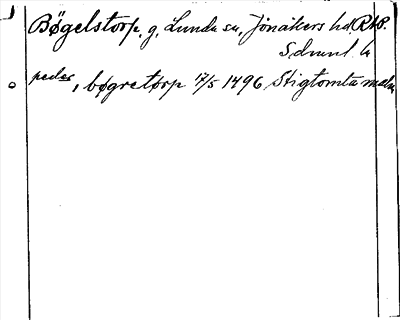 Bøgelstorp, g, Lunda sn, Jönåkers hd RAP.
Sdmnl. ln
peder, bøgretorp 17/5 1496 Stigtomta malm